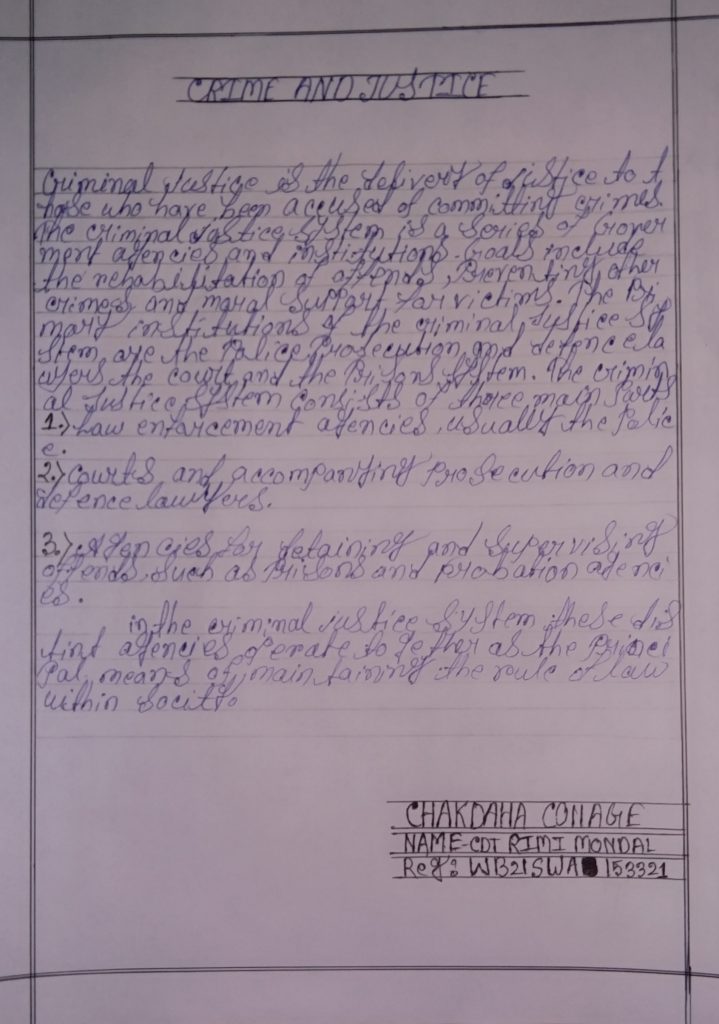 CRIME AND JUSTICE
Criminal Justice is the delivery of justice to t
hose who have been accused of committing crimes.
The criminal Justice System is a series of Gover
ment agencies and institutions. Goals include
the rehabilitation of offends, Preventing other
crimes, and moral Support for victims. The Pri
mary institutions of the criminal Justice Sy
stem are the Police, Prosecution and defence la
wyers the court and the Prisons System. The crimin
al Justice System Consists of three main Parts
1.) Law enforcement agencies, usually the Polic
e.
2.) Courts and accompanying Prosecution and
defence lawyers.
3.) Agencies for detaining and Supervising
offends, Such as Prisons and Probation agenci
es.
in the criminal justice System these dis
tint agencies operate to gether as the Princi
Pal means of maintaining the rule of law
within Socity.
CHAKDAHA COllAGE
NAME-CDT RIMI MONDAL
Reg: WB21SWA 153321